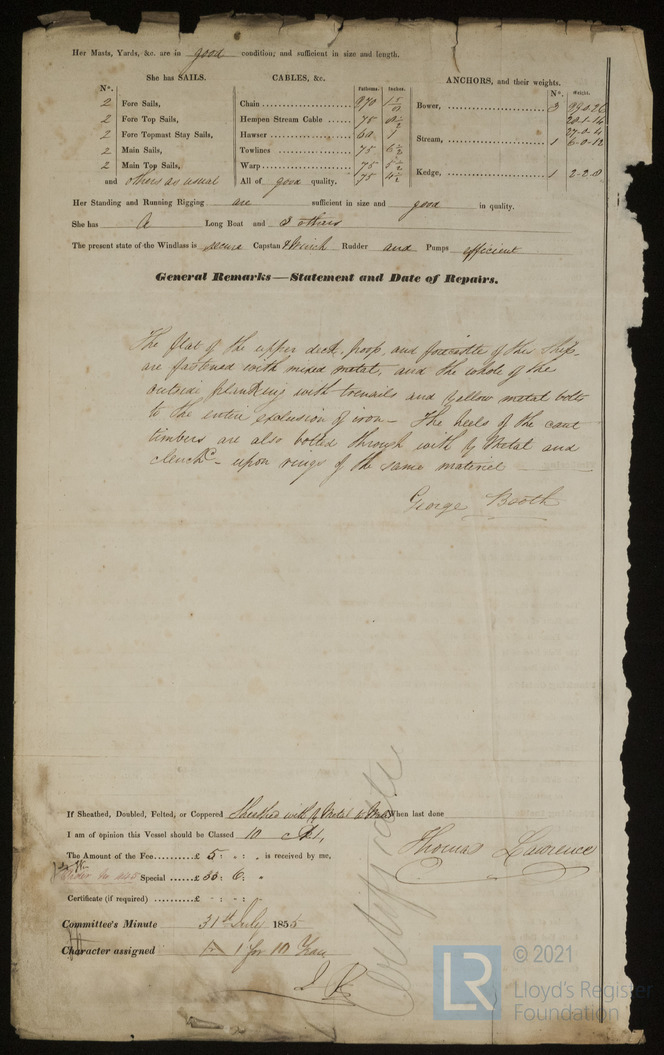 Her Masts, Yards, &c. are in good condition; and sufficient in size and length.
She has SAILS. CABLES, &c. ANCHORS, and their weights.
N°. Fathoms. Inches. N°. Weight.
2 Fore Sails, Chain 1 Bower, 3
2 Fore Top Sails, Hempen Stream Cable 75 20-1-14
2 Fore Topmast Stay Sails, Hawser 60 7 27-0-4
2 Main Sails, Towlines 75 6½ Stream, 1 6-0-12
2 Main Top Sails, Warp 75 5½
and others as usual All of good quality. 75 4½ Kedge, 1 2-2-0
Her Standing and Running Rigging are sufficient in size and good in quality.
She has A Long Boat and 3 others
The present state of the Windlass is secure Capstan & Winch Rudder and Pumps efficient
General Remarks—Statement and Date of Repairs.
The flat of the upper deck, poop, and forecastle of this Ship,
are fastened with mixed metal, and the whole of the
outside planking with trenails and yellow metal bolts
to the entire exclusion of iron – The heels of the cant
timbers are also bolted through with Y Metal and
clenchd – upon rings of the same material
George Booth
If Sheathed, Doubled, Felted, or Coppered Sheathed with Y Metal When last done
I am of opinion this Vessel should be Classed 10 A1,
Thomas Lawrence
The Amount of the Fee £ 5 : - : . is received by me,
Special £ : 6 :
Certificate (if required) £ - : - : .
Certificate
Committee's Minute 31st July 1855
Character assigned 1 for 10 Years
LR
© 2021
Lloyd's Register
Foundation